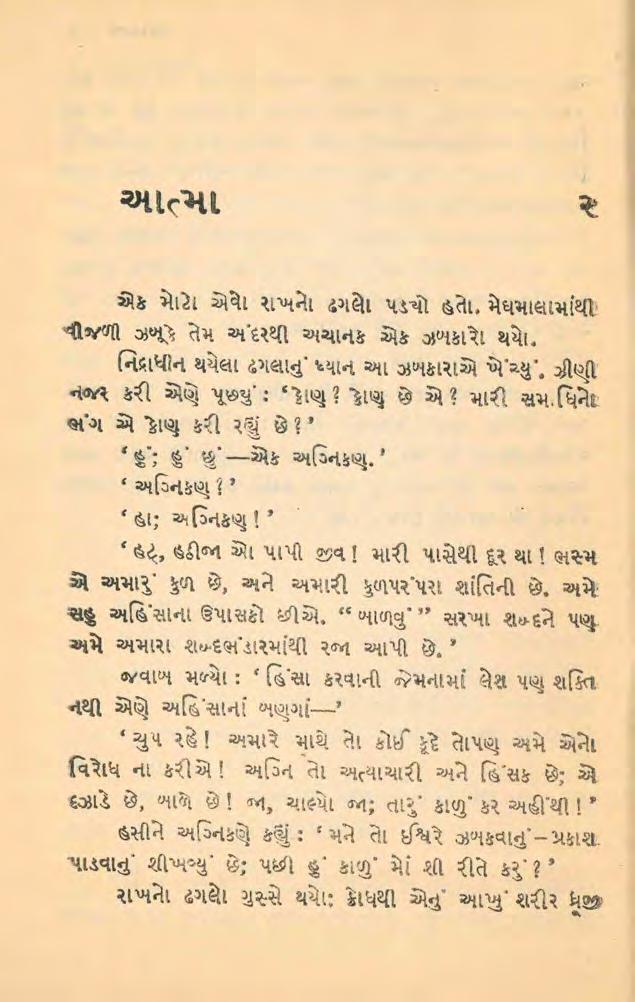 આત્મા ૨
એક મોટો એવો રાખનો ઢગલો પડ્યો હતો. મેઘમાલામાંથી
વીજળી ઝબૂકે તેમ અંદરથી અચાનક એક ઝબકારો થયો.
નિદ્રાધીન થયેલા ઢગલાનું ધ્યાન આ ઝબકારાએ ખેંચ્યું. ઝીણી
નજર કરી એણે પૂછ્યું : ‘કોણ? કોણ છે એ? મારી સમાધિનો
ભંગ એ કોણ કરી રહ્યું છે?’
‘હું; હું છું—એક અગ્નિકણ.’
‘અગ્નિકણ?’
‘હા; અગ્નિકણ!’
‘હટ્, હઠીજા ઓ પાપી જીવ! મારી પાસેથી દૂર થા! ભસ્મ
એ અમારું કુળ છે, અને અમારી કુળપરંપરા શાંતિની છે. અમે
સહુ અહિંસાના ઉપાસકો છીએ. “બાળવું” સરખા શબ્દને પણ
અમે અમારા શબ્દભંડારમાંથી રજા આપી છે.’
જવાબ મળ્યો : ‘હિંસા કરવાની જેમનામાં લેશ પણ શક્તિ
નથી એણે અહિંસાનાં બણગાં—’
‘ચુપ રહે! અમારે માથે તો કોઈ કૂદે તોપણ અમે એનો
વિરોધ ના કરીએ! અગ્નિ તો અત્યાચારી અને હિંસક છે; એ
દઝાડે છે, બાળે છે! જા, ચાલ્યો જા; તારું કાળું કર અહીંથી!’
હસીને અગ્નિકણે કહ્યું : ‘મને તો ઈશ્વરે ઝબકવાનું–પ્રકાશ
પાડવાનું શીખવ્યું છે; પછી હું કાળું મોં શી રીતે કરું?’
રાખનો ઢગલો ગુસ્સે થયો: ક્રોધથી એનું આખું શરીર ધ્રૂજી